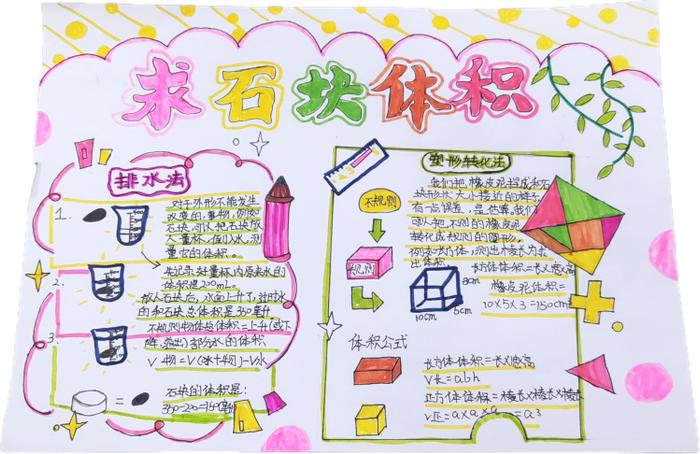 求石块体积
排水法
1.
对于外形不能发生
改变的事物，例如
石块，可以把石块放
入量杯，值以水，测
量虫的体积。
2.
先记录处量杯内原来水的
体积是200mL。
放入石块后，水面上升了，这时水
的和石块总体积是350毫升
3
不规则物体总体积=上升(或下
降、溢出)部分水的体积
V物=V(水+物)-V水
石块的体积是:
=
变形转化法
我们把橡皮泥捏成和石
块形状大小接近的样子
有一点误差，是估算，我们
可以把不规的橡皮泥
转化成规则的图形。
例如长方体，测出棱长方求
出体积
不规则
规则
长方体体积=长x宽x高
橡皮泥体积=
10x5x3=150cm
3cm
5cm
10cm
体积公式
长方体体积=长x宽x高
V长=abh
正方体体积=棱长x棱长x棱长
V正=axaxa=a³